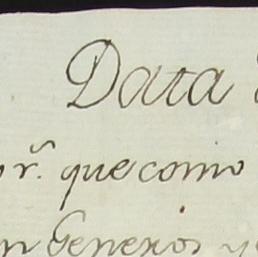 Data
r. que como
Generos y